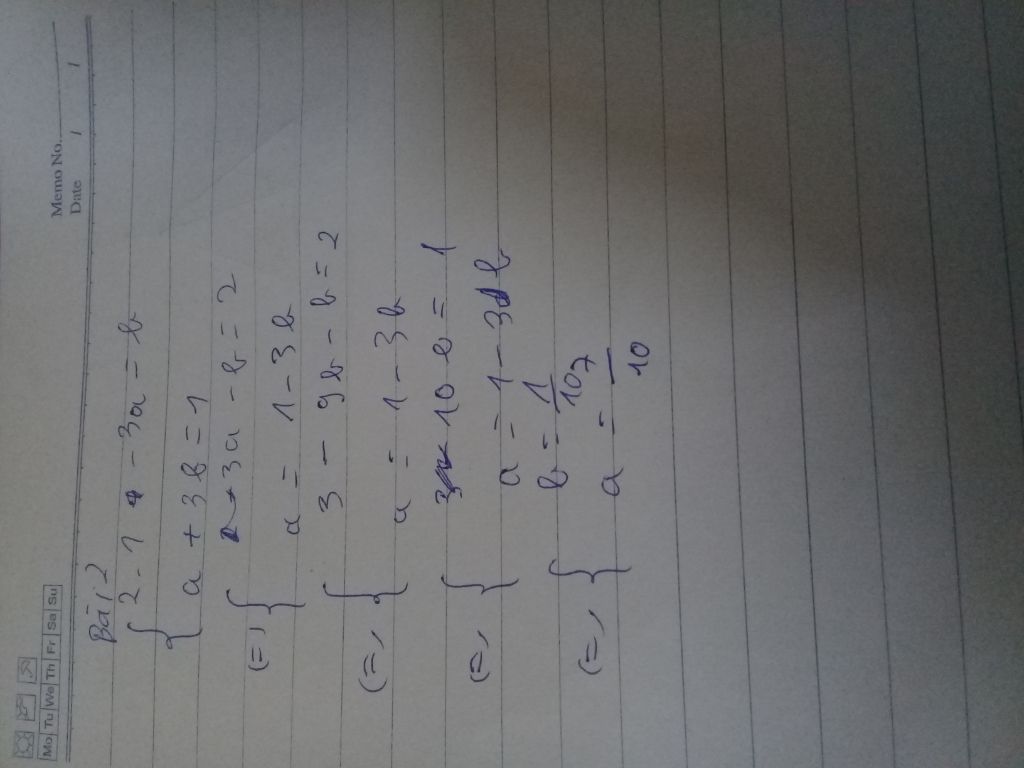 Memo No.
Mo Tu We Th Fr Sa Su
Date / /
Bài 2
{ 2 . 1 - 3a = b
a + 3b = 1
(=) { 3a - b = 2
a = 1 - 3b
(=) { 3 - 9b - b = 2
a = 1 - 3b
(=) { 10b = 1
a = 1 - 3b
(=) { b = 1/10
a = 7/10